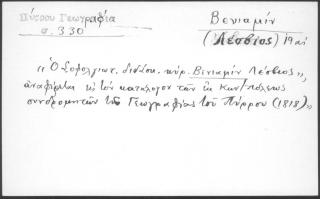 Πύρρου Γεωγραφία
σ. 330
Βενιαμίν
(Λέσβιος) 19 αἰ
"Ὁ Σοφολογιωτ. διδάσκ. κύρ. Βενιαμίν Λέσβιος",
ἀναφέρεται εἰς τόν κατάλογον τῶν ἐκ Κων/πόλεως
συνδρομητῶν τῆς Γεωγραφίας τοῦ Πύρρου (1818)"